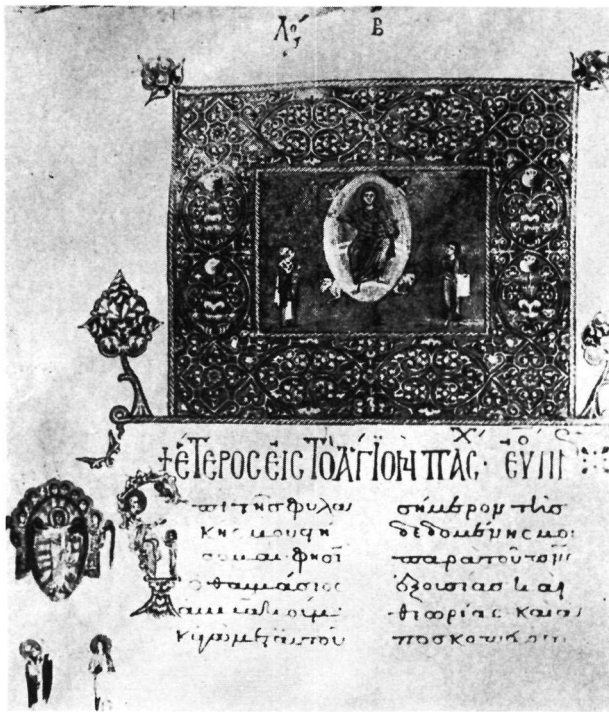 Λόγ Β
+ ἝΤΕΡΟΣ ΕἸΣ ΤΟ ἍΓΙΟΝ ΠΑΣΧ·
πὶ τῆς φυλα
κῆς μου στή
σομαι φησὶ
ὁ θαυμάσιος
ἀμβακούμ·
κἀγὼ μετ αὐτοῦ
σήμερον τῆς
δεδομένης μοι
παρὰ τοῦ πνς
ἐξουσίας καὶ
θεωρίας καὶ ἀ